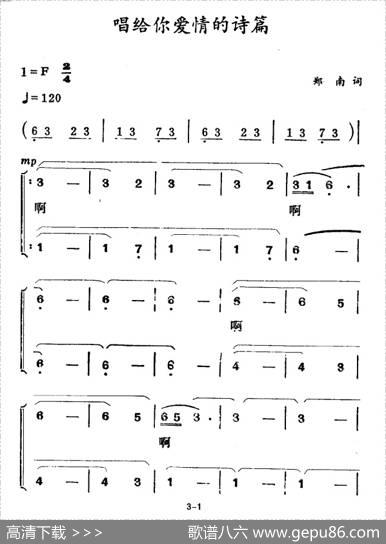 唱给你爱情的诗篇
1=F 2/4
♩=120
郑 南 词
(6 3 2 3 | 1 3 7 3 | 6 3 2 3 | 1 3 7 3)
mp
3 — | 3 2 | 3 — | 3 2 | 3 1 6 ·
啊 啊
1 — | 1 7 | 1 — | 1 7 | 6 —
6 — | 6 — | 6 — | 6 — | 6 5
啊
6 — | 6 — | 6 — | 4 — | 4 3
6 — | 6 5 | 6 5 3 · | 3 — | 3 —
啊
4 — | 4 3 | 1 — | 1 — | 1 —
3-1
高清下载 >>>
歌谱八六 www.gepu86.com